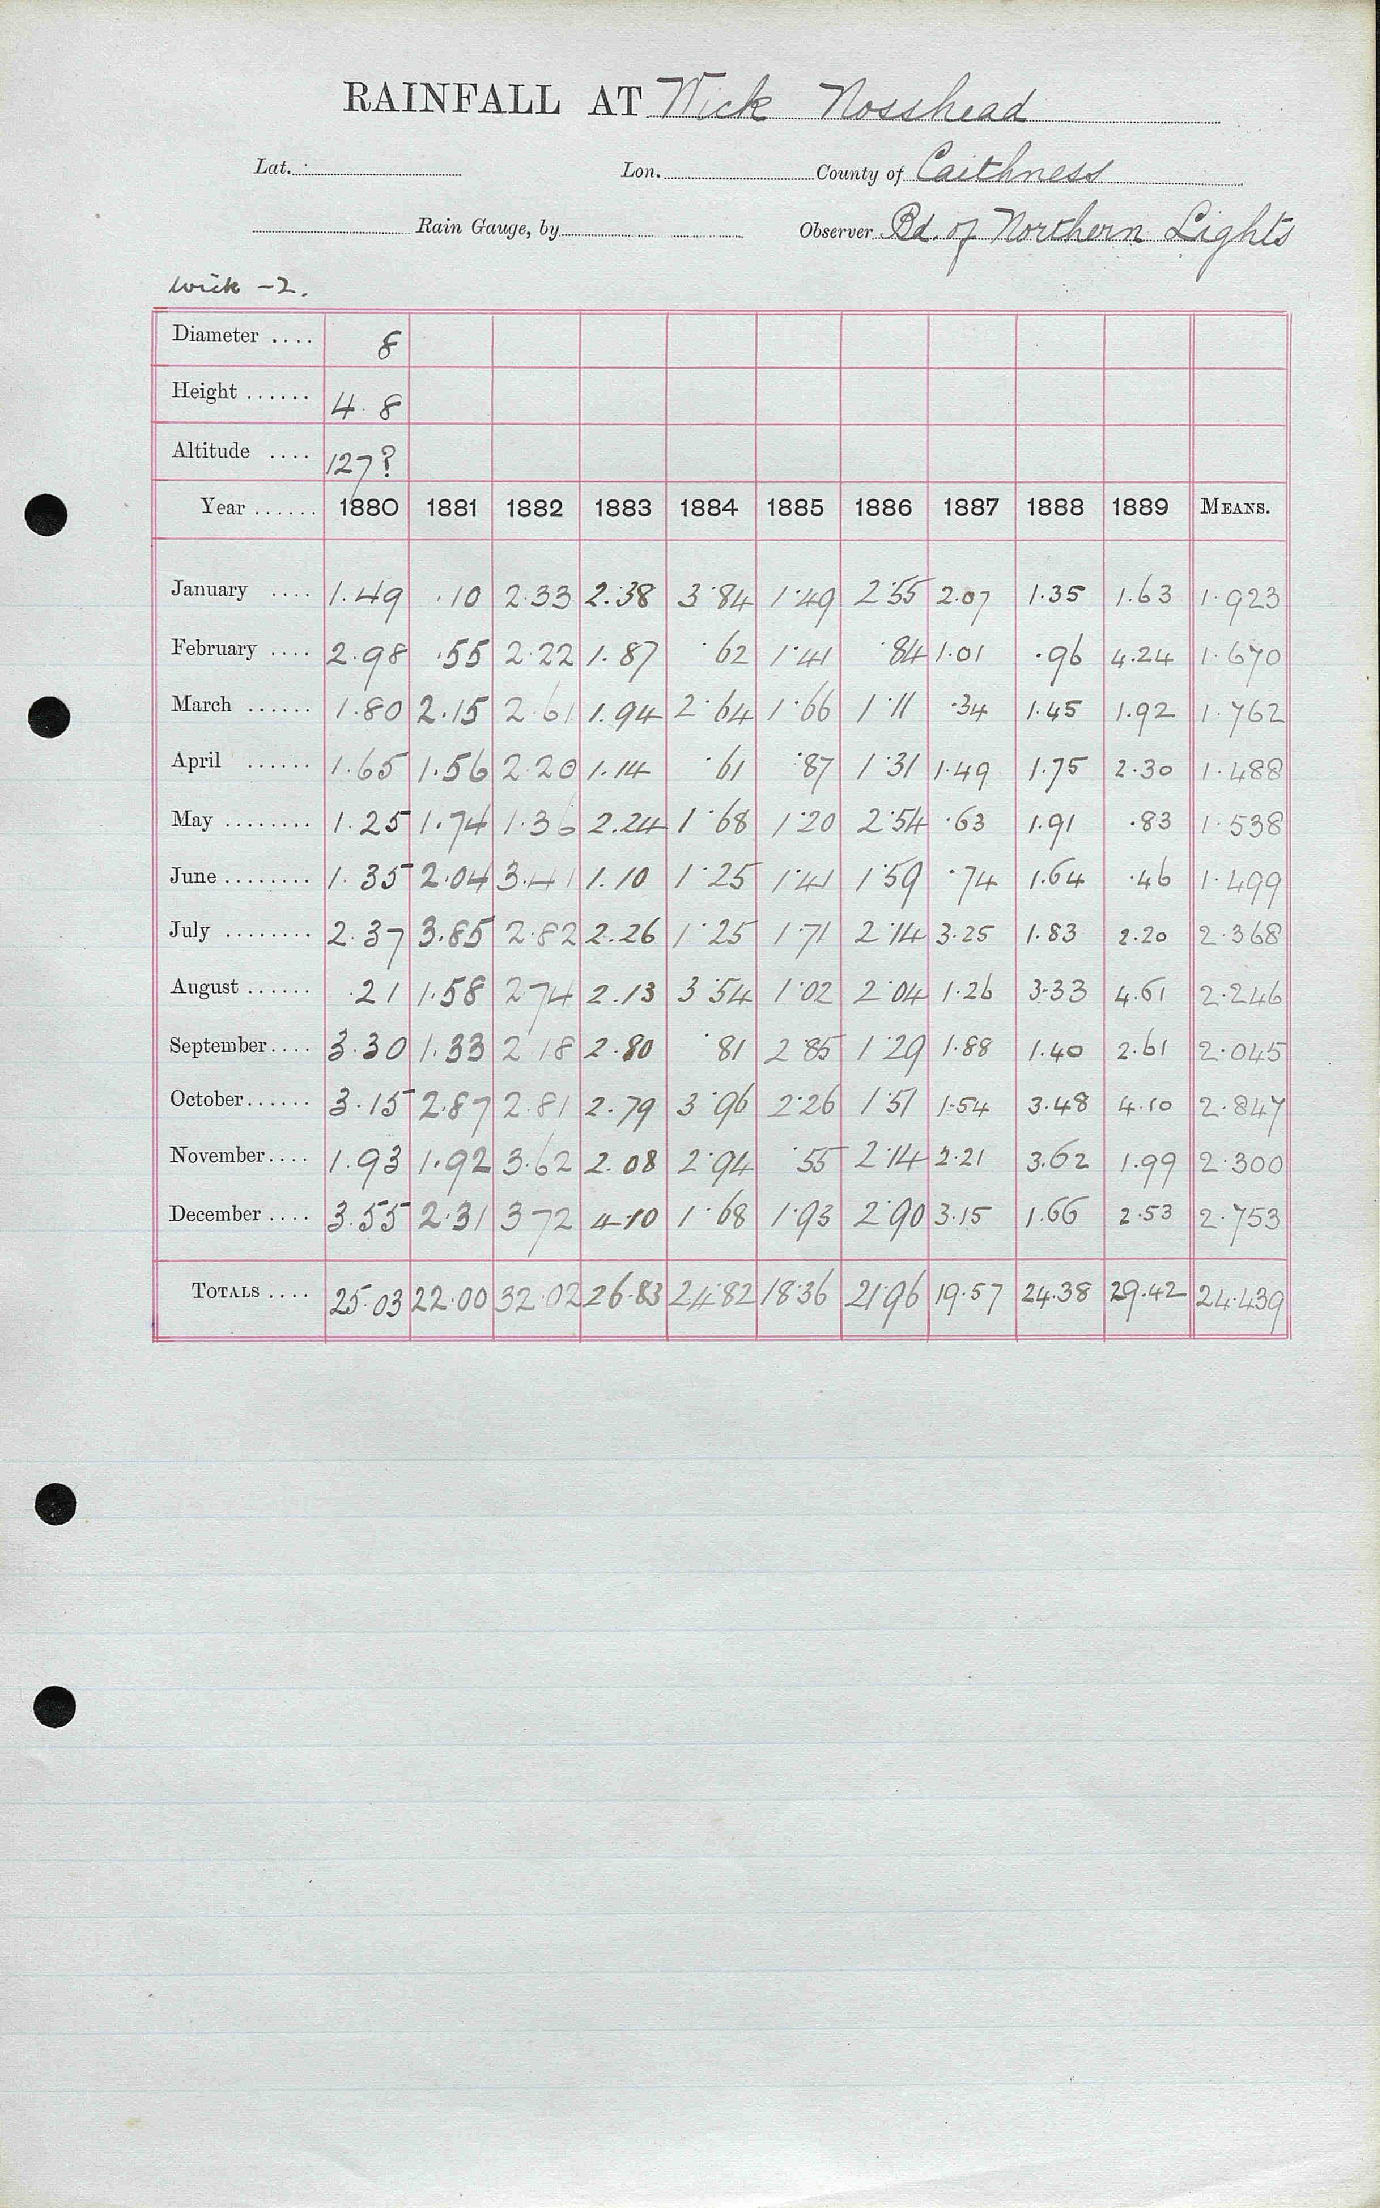 RAINFALL AT Wick Nosshead
Lat. Lon. County of Caithness
Rain Gauge, by Observer Bd. of Northern Lights
Wick - 2.
Diameter .... 8
Height ...... 4. 8
Altitude .... 127?
Year ...... 1880 1881 1882 1883 1884 1885 1886 1887 1888 1889 MEANS.
January .... 1.49 .10 2.33 2.38 3.84 1.49 2.55 2.07 1.35 1.63 1.923
February .... 2.98 .55 2.22 1.87 .62 1.41 .84 1.01 .96 4.24 1.670
March ...... 1.80 2.15 2.61 1.94 2.64 1.66 1.11 .34 1.45 1.92 1.762
April ...... 1.65 1.56 2.20 1.14 .61 .87 1.31 1.49 1.75 2.30 1.488
May ........ 1.25 1.74 1.36 2.24 1.68 1.20 2.54 .63 1.91 .83 1.538
June ........ 1.35 2.04 3.41 1.10 1.25 1.41 1.59 .74 1.64 .46 1.499
July ........ 2.37 3.85 2.82 2.26 1.25 1.71 2.14 3.25 1.83 2.20 2.368
August ...... .21 1.58 2.74 2.13 3.54 1.02 2.04 1.26 3.33 4.61 2.246
September.... 3.30 1.33 2.18 2.80 .81 2.85 1.29 1.88 1.40 2.61 2.045
October...... 3.15 2.87 2.81 2.79 3.96 2.26 1.51 1.54 3.48 4.10 2.847
November.... 1.93 1.92 3.62 2.08 2.94 .55 2.14 2.21 3.62 1.99 2.300
December .... 3.55 2.31 3.72 4.10 1.68 1.93 2.90 3.15 1.66 2.53 2.753
TOTALS .... 25.03 22.00 32.02 26.83 24.82 18.36 21.96 19.57 24.38 29.42 24.439